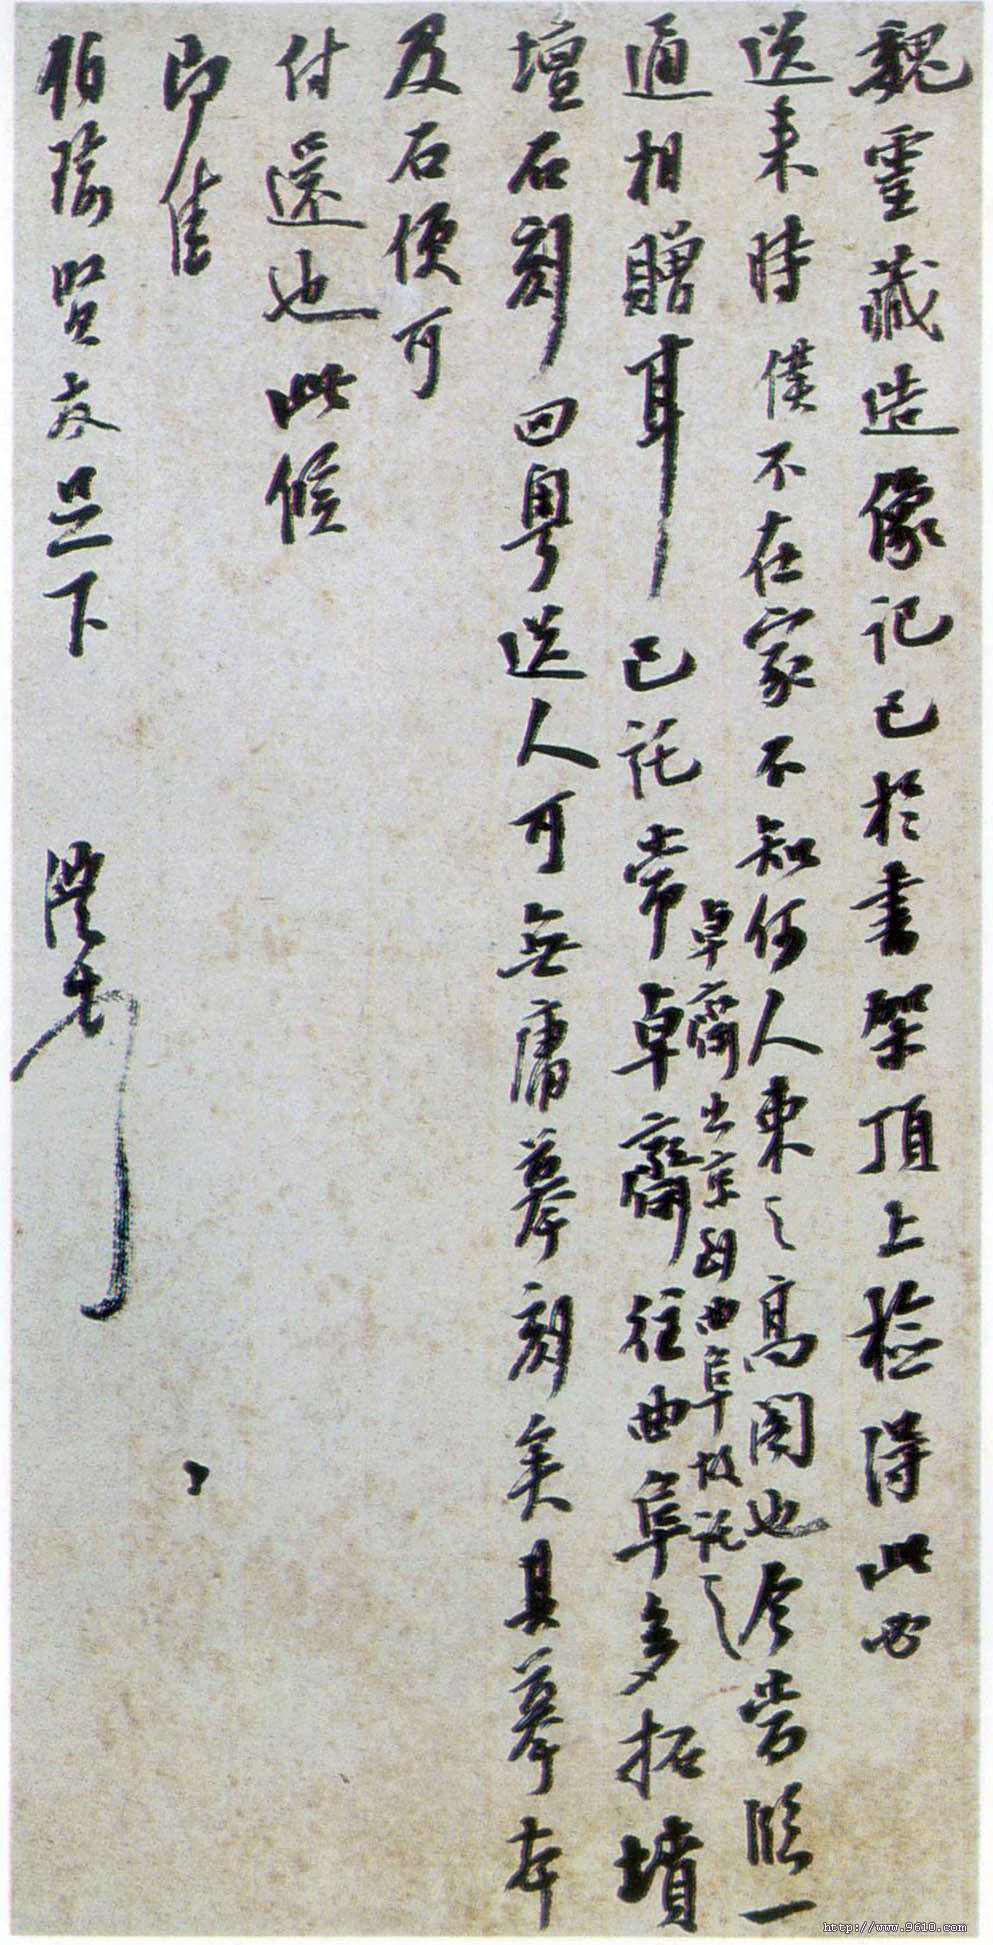 魏靈藏造像記已於書架頂上檢得此必
送來時僕不在家不知何人束之高閣也今當臨一
通相贈耳已託常卓齋往曲阜多拓墳
卓齋出京到曲阜故託之
壇石刻回粵送人可無庸摹刻矣其摹本
及石便可
付還也此候
即佳
伯瑜賢友足下
澧出
http://www.9610.com